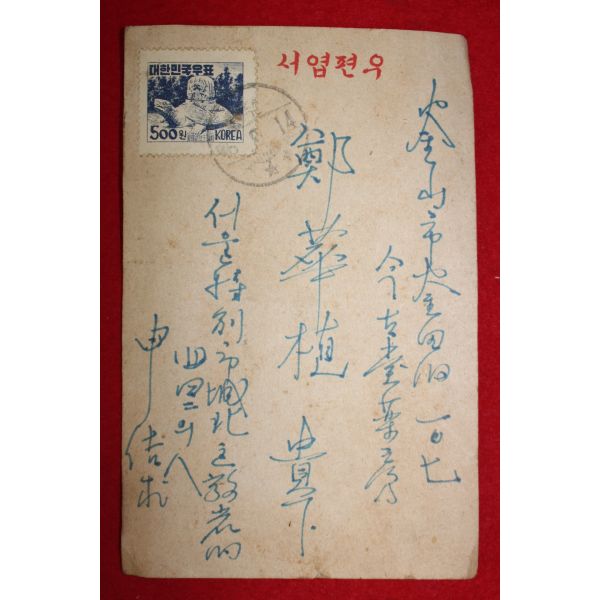 우편엽서
대한민국우표
500원 KOREA
釜山市釜田洞 一0七
今古堂藥房
鄭華植 貴下
서울特別市城北區敦岩洞
의八
申佶